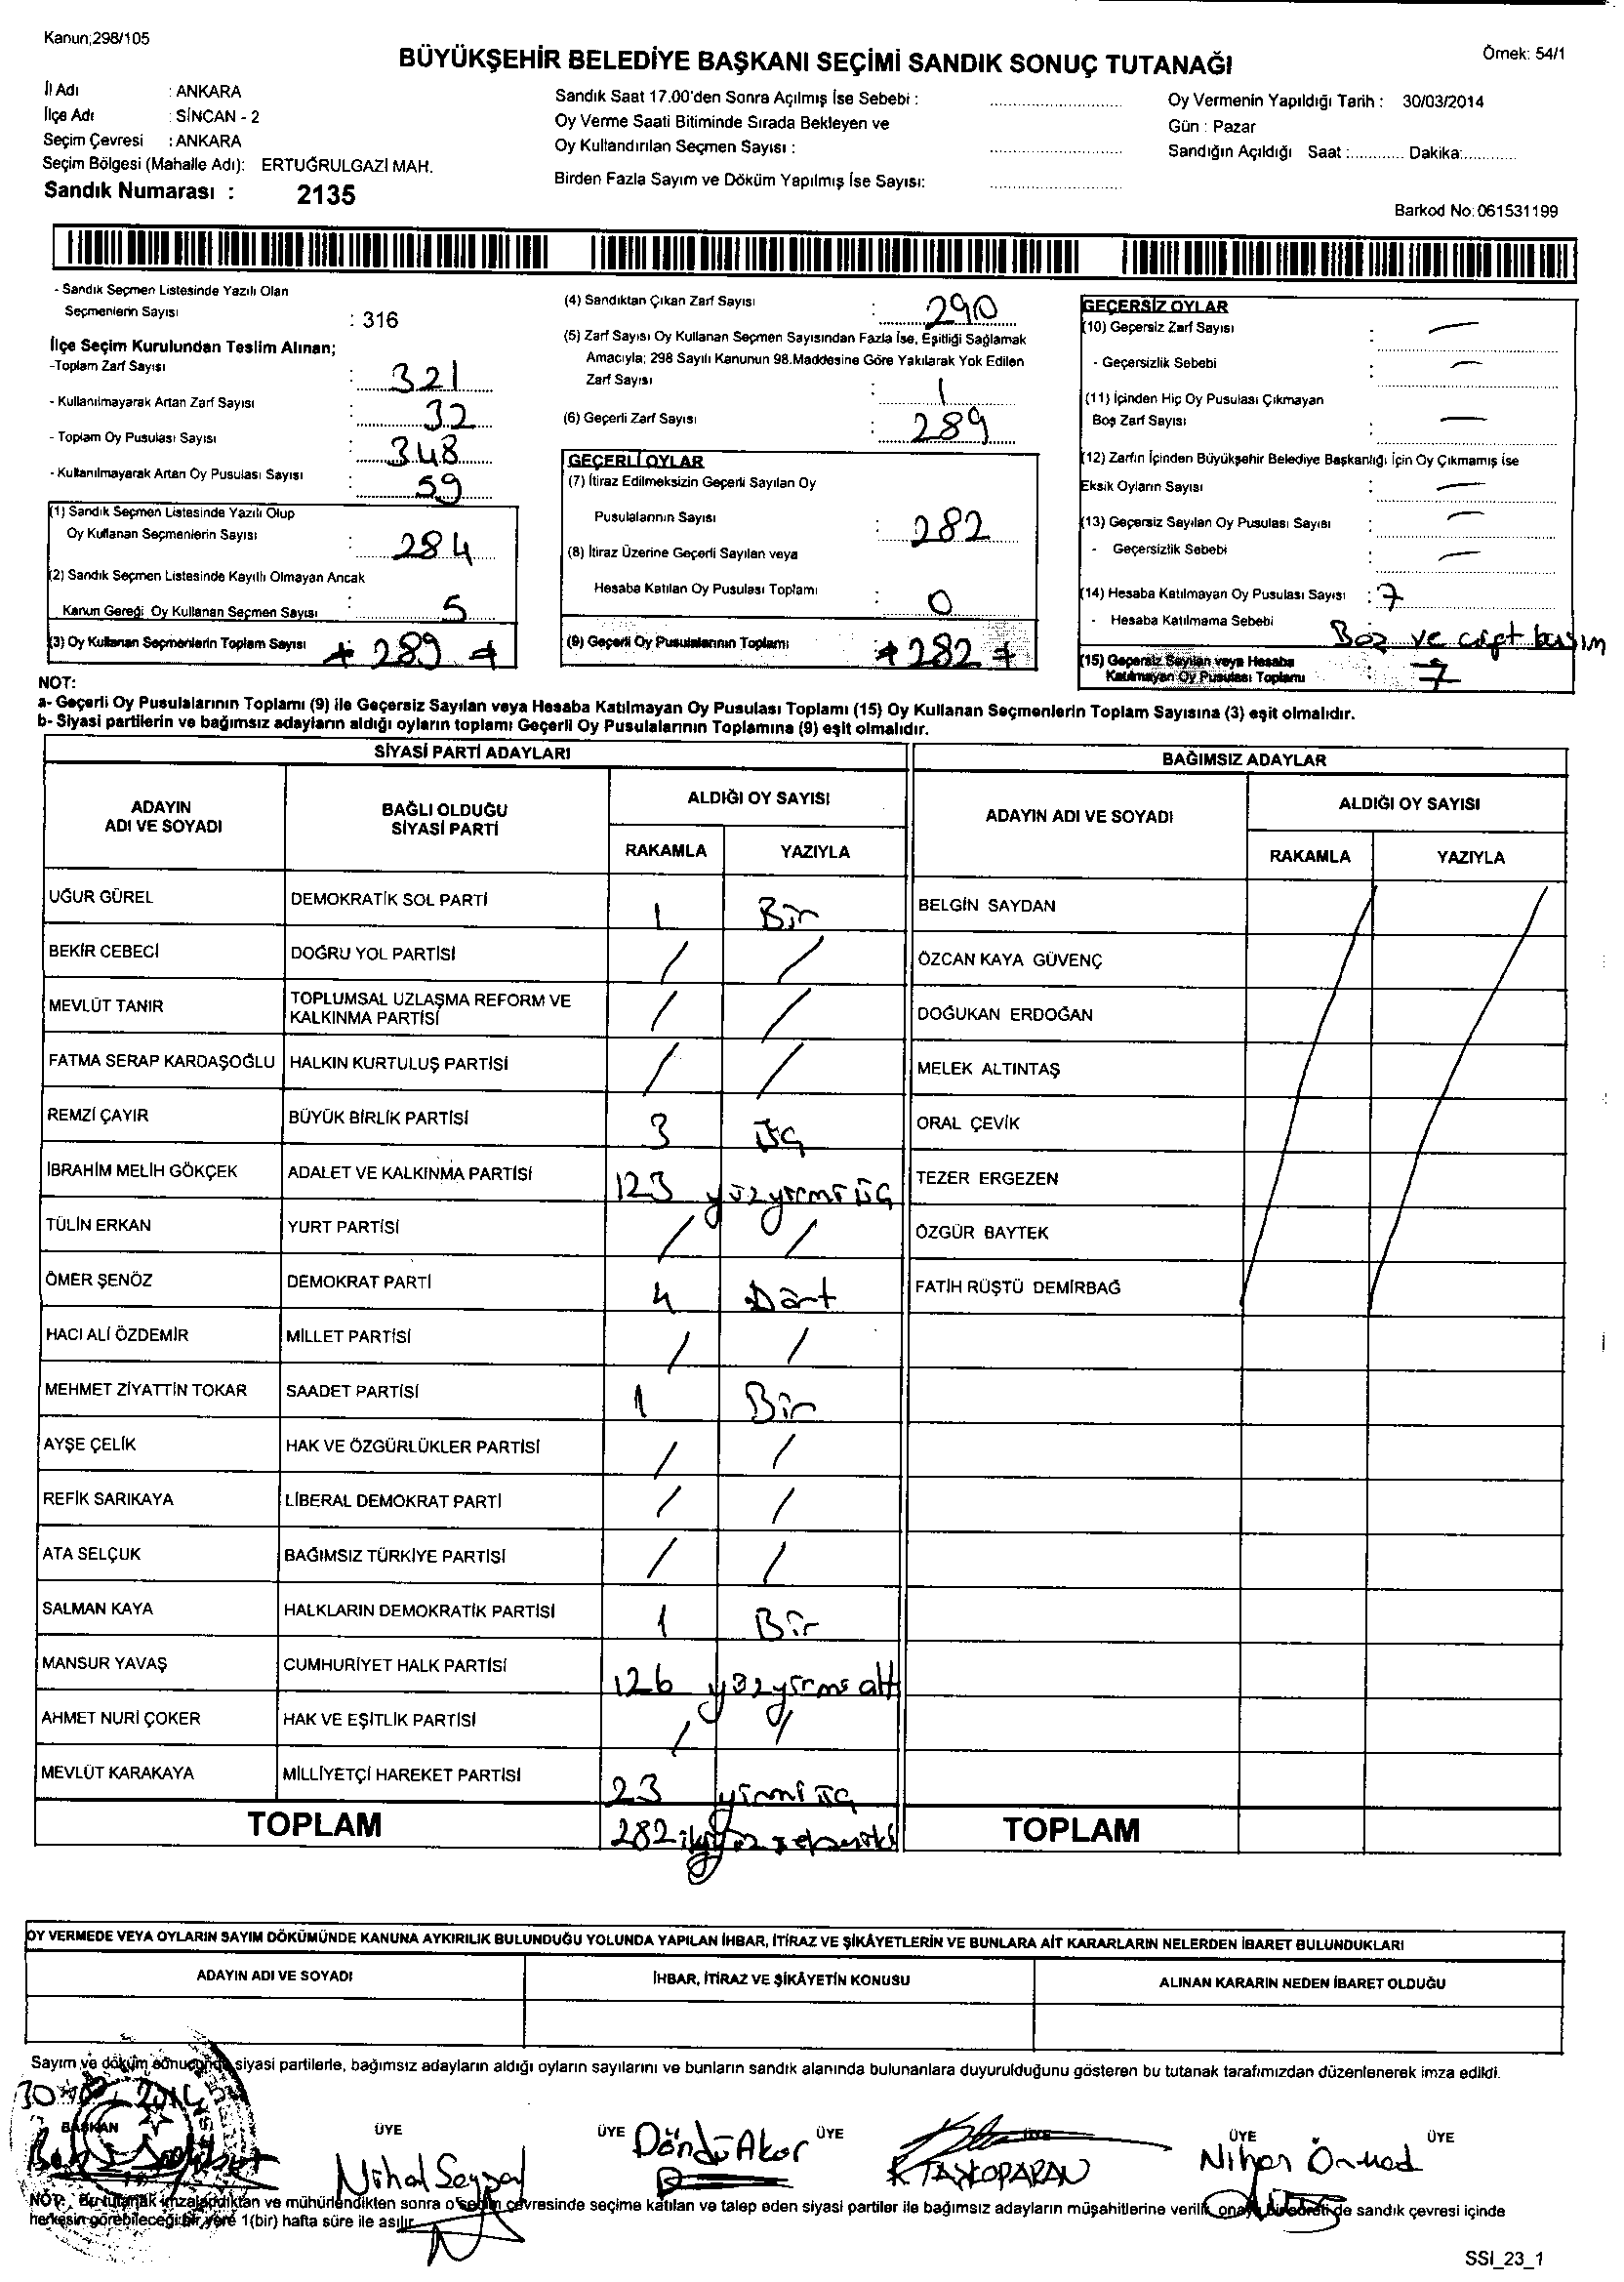 Kanun;298/105
BÜYÜKŞEHİR BELEDİYE BAŞKANI SEÇİMİ SANDIK SONUÇ TUTANAĞI
Örnek: 54/1
İl Adı : ANKARA
İlçe Adı : SİNCAN - 2
Seçim Çevresi : ANKARA
Seçim Bölgesi (Mahalle Adı): ERTUĞRULGAZİ MAH.
Sandık Numarası : 2135
Sandık Saat 17.00'den Sonra Açılmış İse Sebebi :
Oy Verme Saati Bitiminde Sırada Bekleyen ve
Oy Kullandırılan Seçmen Sayısı :
Birden Fazla Sayım ve Döküm Yapılmış İse Sayısı:
Oy Vermenin Yapıldığı Tarih : 30/03/2014
Gün : Pazar
Sandığın Açıldığı Saat :............ Dakika:............
Barkod No: 061531199
- Sandık Seçmen Listesinde Yazılı Olan
Seçmenlerin Sayısı : 316
İlçe Seçim Kurulundan Teslim Alınan;
-Toplam Zarf Sayısı : 321
- Kullanılmayarak Artan Zarf Sayısı : 32
- Toplam Oy Pusulası Sayısı : 348
- Kullanılmayarak Artan Oy Pusulası Sayısı : 59
(1) Sandık Seçmen Listesinde Yazılı Olup
Oy Kullanan Seçmenlerin Sayısı : 284
(2) Sandık Seçmen Listesinde Kayıtlı Olmayan Ancak
Kanun Gereği Oy Kullanan Seçmen Sayısı : 5
(3) Oy Kullanan Seçmenlerin Toplam Sayısı 289
(4) Sandıktan Çıkan Zarf Sayısı : 290
(5) Zarf Sayısı Oy Kullanan Seçmen Sayısından Fazla İse, Eşitliği Sağlamak
Amacıyla; 298 Sayılı Kanunun 98.Maddesine Göre Yakılarak Yok Edilen
Zarf Sayısı : 1
(6) Geçerli Zarf Sayısı : 289
GEÇERLİ OYLAR
(7) İtiraz Edilmeksizin Geçerli Sayılan Oy
Pusulalarının Sayısı : 282
(8) İtiraz Üzerine Geçerli Sayılan veya
Hesaba Katılan Oy Pusulası Toplamı : 0
(9) Geçerli Oy Pusulalarının Toplamı 282
GEÇERSİZ OYLAR
(10) Geçersiz Zarf Sayısı : —
- Geçersizlik Sebebi : —
(11) İçinden Hiç Oy Pusulası Çıkmayan
Boş Zarf Sayısı : —
(12) Zarfın İçinden Büyükşehir Belediye Başkanlığı İçin Oy Çıkmamış İse
Eksik Oyların Sayısı : —
(13) Geçersiz Sayılan Oy Pusulası Sayısı : —
- Geçersizlik Sebebi : —
(14) Hesaba Katılmayan Oy Pusulası Sayısı : 7
- Hesaba Katılmama Sebebi Boz ve çift basım
(15) Geçersiz Sayılan veya Hesaba
Katılmayan Oy Pusulası Toplamı 7
NOT:
a- Geçerli Oy Pusulalarının Toplamı (9) ile Geçersiz Sayılan veya Hesaba Katılmayan Oy Pusulası Toplamı (15) Oy Kullanan Seçmenlerin Toplam Sayısına (3) eşit olmalıdır.
b- Siyasi partilerin ve bağımsız adayların aldığı oyların toplamı Geçerli Oy Pusulalarının Toplamına (9) eşit olmalıdır.
SİYASİ PARTİ ADAYLARI
ADAYIN ADI VE SOYADI
BAĞLI OLDUĞU SİYASİ PARTİ
ALDIĞI OY SAYISI
RAKAMLA YAZIYLA
UĞUR GÜREL DEMOKRATİK SOL PARTİ 1 Bir
BEKİR CEBECİ DOĞRU YOL PARTİSİ / /
MEVLÜT TANIR TOPLUMSAL UZLAŞMA REFORM VE KALKINMA PARTİSİ / /
FATMA SERAP KARDAŞOĞLU HALKIN KURTULUŞ PARTİSİ / /
REMZİ ÇAYIR BÜYÜK BİRLİK PARTİSİ 3 Üç
İBRAHİM MELİH GÖKÇEK ADALET VE KALKINMA PARTİSİ 123 yüzyirmi üç
TÜLİN ERKAN YURT PARTİSİ / /
ÖMER ŞENÖZ DEMOKRAT PARTİ 4 Dört
HACI ALİ ÖZDEMİR MİLLET PARTİSİ / /
MEHMET ZİYATTİN TOKAR SAADET PARTİSİ 1 Bir
AYŞE ÇELİK HAK VE ÖZGÜRLÜKLER PARTİSİ / /
REFİK SARIKAYA LİBERAL DEMOKRAT PARTİ / /
ATA SELÇUK BAĞIMSIZ TÜRKİYE PARTİSİ / /
SALMAN KAYA HALKLARIN DEMOKRATİK PARTİSİ 1 Bir
MANSUR YAVAŞ CUMHURİYET HALK PARTİSİ 126 yüzyirmi altı
AHMET NURİ ÇOKER HAK VE EŞİTLİK PARTİSİ / /
MEVLÜT KARAKAYA MİLLİYETÇİ HAREKET PARTİSİ 23 yirmi üç
TOPLAM 282 ikiyüz seksen iki
BAĞIMSIZ ADAYLAR
ADAYIN ADI VE SOYADI
ALDIĞI OY SAYISI
RAKAMLA YAZIYLA
BELGİN SAYDAN
ÖZCAN KAYA GÜVENÇ
DOĞUKAN ERDOĞAN
MELEK ALTINTAŞ
ORAL ÇEVİK
TEZER ERGEZEN
ÖZGÜR BAYTEK
FATİH RÜŞTÜ DEMİRBAĞ
TOPLAM
OY VERMEDE VEYA OYLARIN SAYIM DÖKÜMÜNDE KANUNA AYKIRILIK BULUNDUĞU YOLUNDA YAPILAN İHBAR, İTİRAZ VE ŞİKÂYETLERİN VE BUNLARA AİT KARARLARIN NELERDEN İBARET BULUNDUKLARI
ADAYIN ADI VE SOYADI İHBAR, İTİRAZ VE ŞİKÂYETİN KONUSU ALINAN KARARIN NEDEN İBARET OLDUĞU
Sayım ve döküm sonucunda siyasi partilerle, bağımsız adayların aldığı oyların sayılarını ve bunların sandık alanında bulunanlara duyurulduğunu gösteren bu tutanak tarafımızdan düzenlenerek imza edildi.
2014
BAŞKAN ÜYE ÜYE ÜYE ÜYE ÜYE ÜYE
Nihal Döndü Akor TAŞKOPARAN
NOT: Bu tutanak imzalandıktan ve mühürlendikten sonra o seçim çevresinde seçime katılan ve talep eden siyasi partiler ile bağımsız adayların müşahitlerine verilir, onaylı bir sureti de sandık çevresi içinde
herkesin görebileceği bir yere 1(bir) hafta süre ile asılır.
SSI_23_1